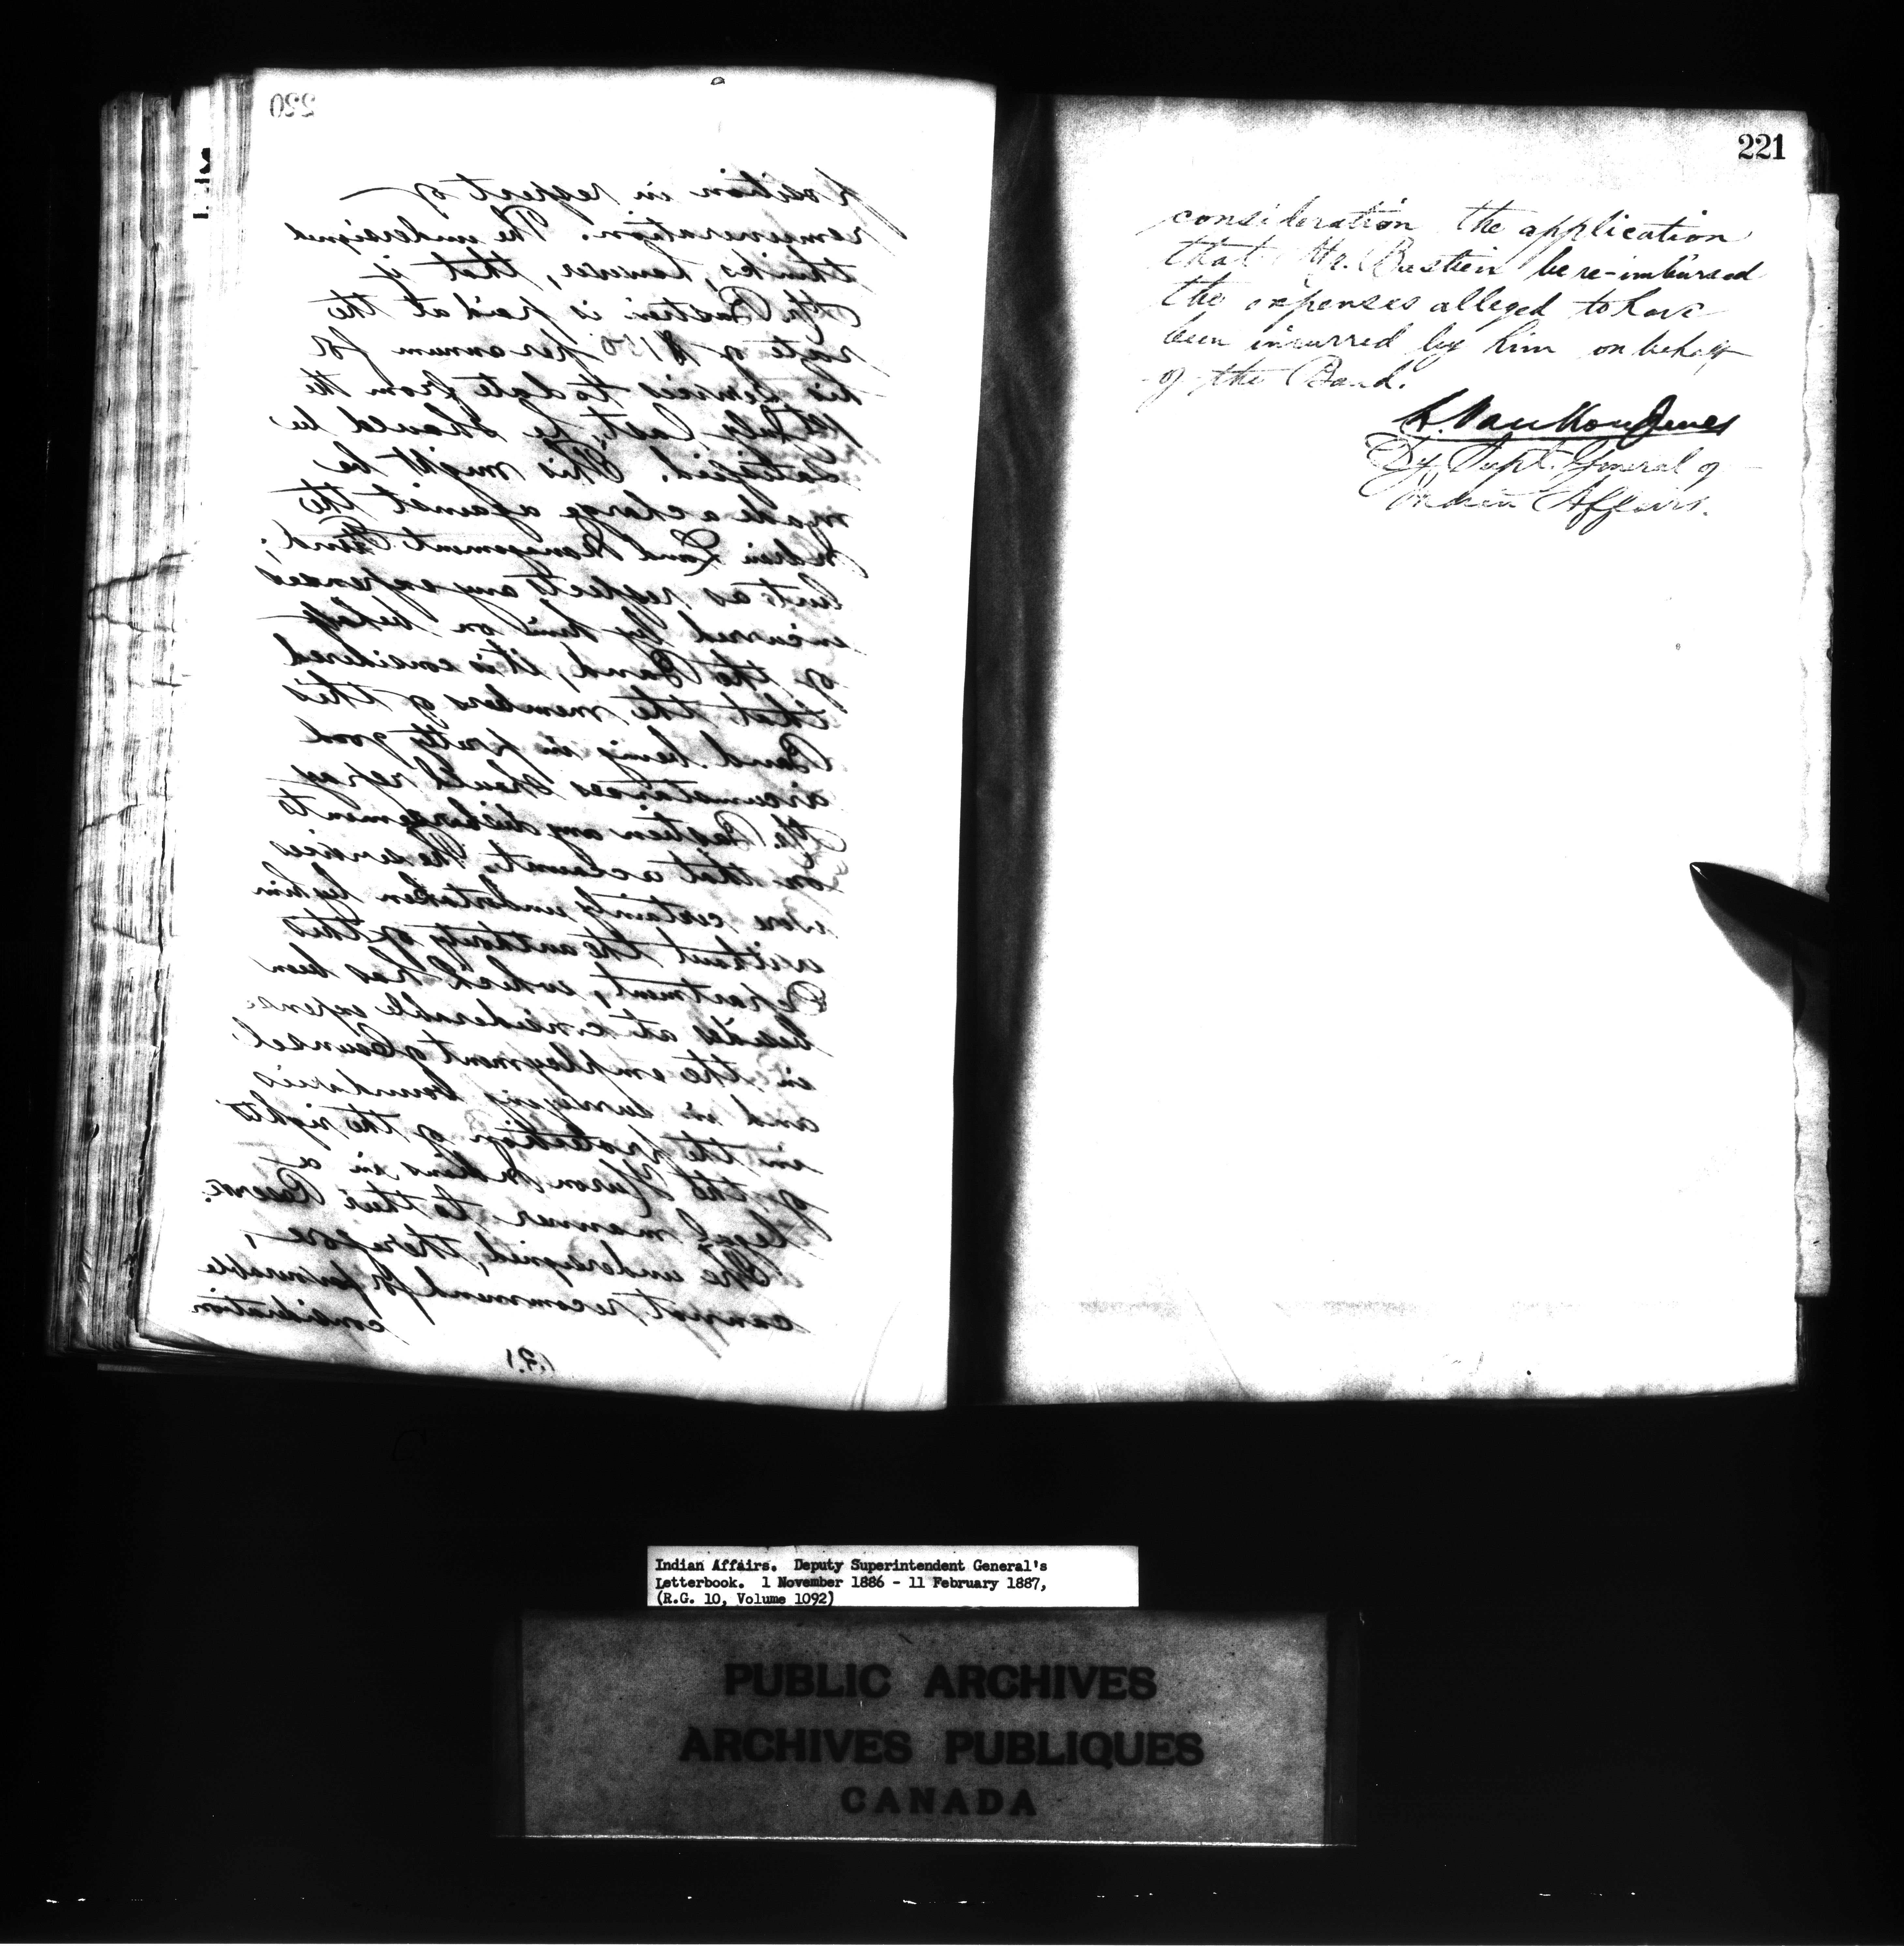 220
position in respect of
remuneration. The undersigned
thinks, however, that if
Mr. Bastien is paid at the
rate of $150 per annum for
his services to date from the
1st July last, he should be
satisfied. This might be
made a charge against the
Indian Land Management Fund;
but as respects any expenses
incurred by him on behalf
of the Band, it is considered
that the members of this
Band being in pretty good
circumstances should repay
Mr. Bastien any disbursements
on that account. The services
were certainly undertaken by him
without the authority of this
Department, which has been
besides at considerable expense
in the employment of Counsel
and in surveying boundaries
in the protection of the rights
of the Huron Indians in a
legal manner to their Reserve.
The undersigned, therefore,
cannot recommend for favourable
consideration
221
consideration the application
that Mr. Bastien be re-imbursed
the expenses alleged to have
been incurred by him on behalf
of the Band.
L. VanKoughnet
Dy. Supt. General of
Indian Affairs.
Indian Affairs. Deputy Superintendent General's
Letterbook. 1 November 1886 - 11 February 1887,
(R.G. 10, Volume 1092)
PUBLIC ARCHIVES
ARCHIVES PUBLIQUES
CANADA